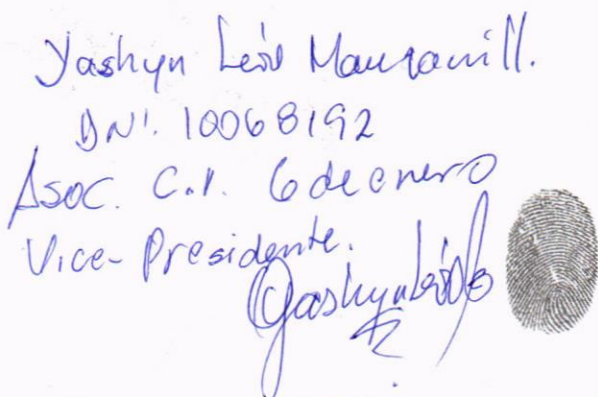 Yashyn León Manzanill.
DNI. 10068192
Asoc. C.P. 6 de enero
Vice-Presidente.
Yashyn León